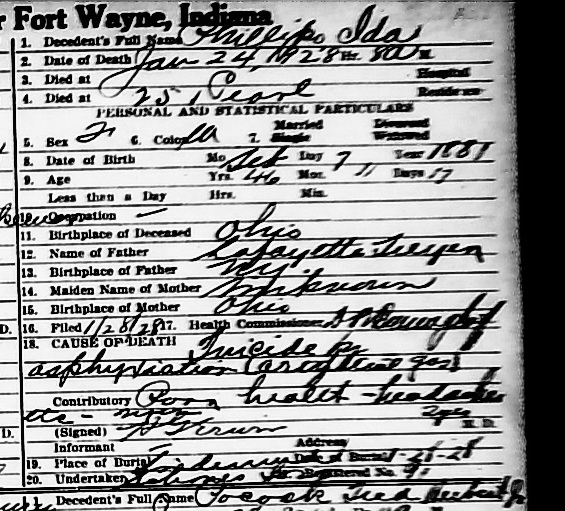 Fort Wayne, Indiana
1. Decedent's Full Name Phillips Ida
2. Date of Death Jan 24, 1928 Hr. 8 a M
3. Died at Hospital
4. Died at 251 Pearl Residence
PERSONAL AND STATISTICAL PARTICULARS
Married Divorced
5. Sex F 6. Color W 7. Single Widowed
8. Date of Birth Mo. Day 7 Year 1881
9. Age Yrs. 46 Mos. Days 17
Less than a Day Hrs. Min.
10. Occupation —
11. Birthplace of Deceased Ohio
12. Name of Father Lafayette
13. Birthplace of Father N.Y.
14. Maiden Name of Mother Unknown
15. Birthplace of Mother Ohio
D. 16. Filed 1/28/28 17. Health Commissioner
18. CAUSE OF DEATH Suicide by
asphyxiation (acetylene gas)
Contributory Poor health - headaches
etc - 2 yrs
D. (Signed) M. D.
Informant Address
19. Place of Burial Lindenwood Date of Burial
20. Undertaker Registered No.
1. Decedent's Full Name Pocock Fred